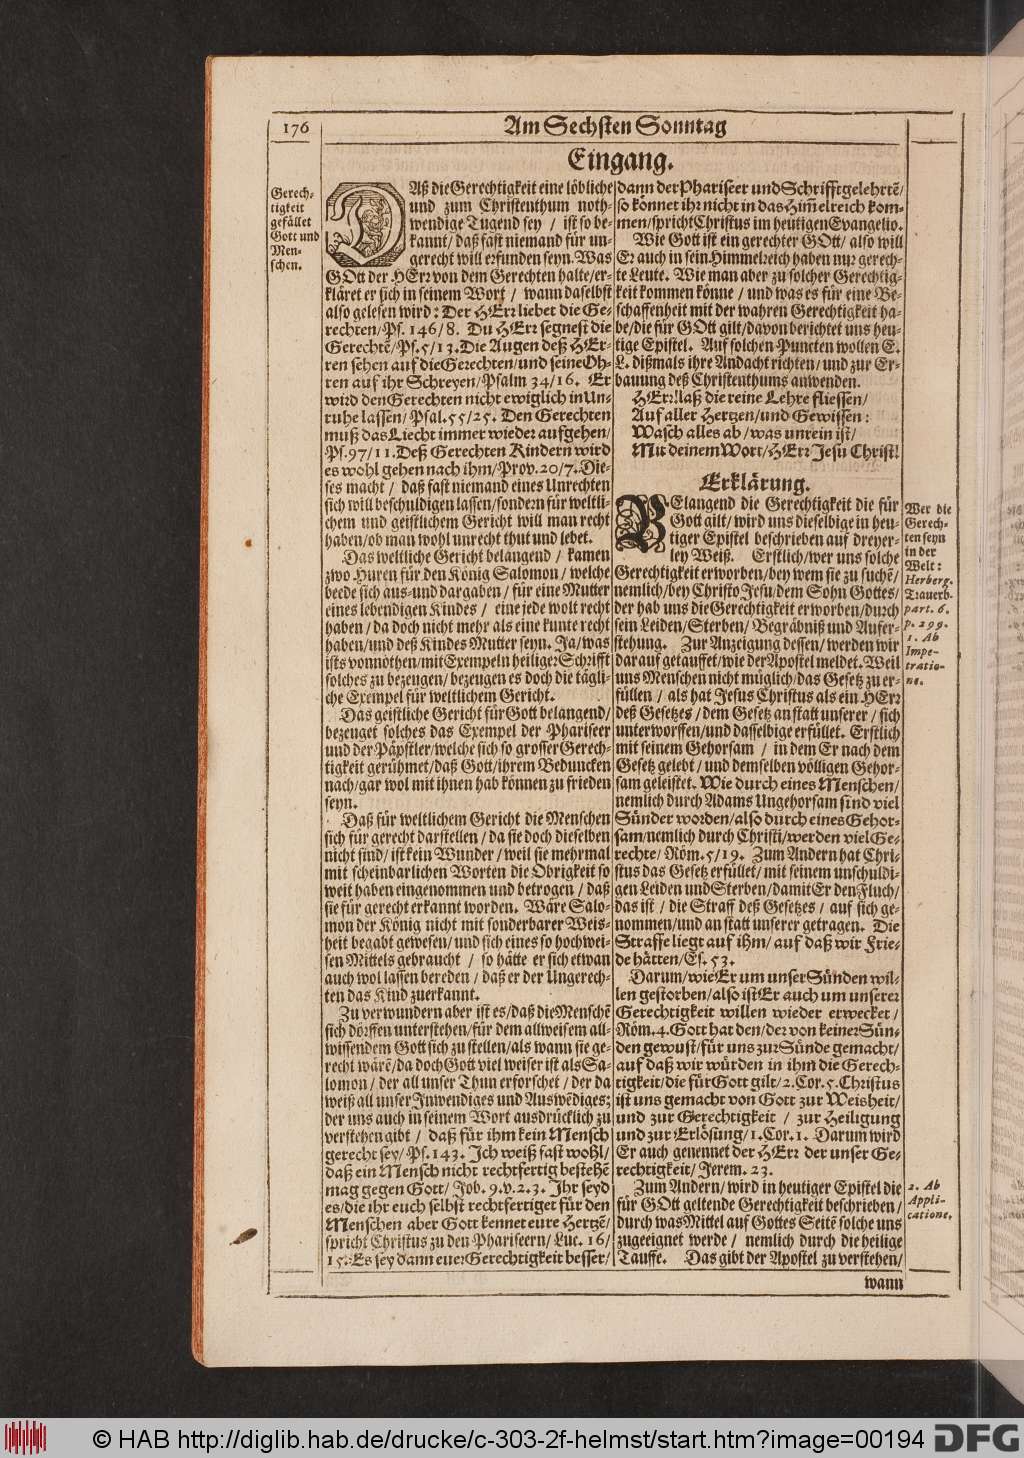 176
Am Sechsten Sonntag
Eingang.
Gerech-
tigkeit
gefället
Gott und
Men-
schen.
DAß die Gerechtigkeit eine löbliche
und zum Christenthum noth-
wendige Tugend sey / ist so be-
kannt / daß fast niemand für un-
gerecht will erfunden seyn. Was
GOtt der HErr von dem Gerechten halte / er-
kläret er sich in seinem Wort / wann daselbst
also gelesen wird: Der HErr liebet die Ge-
rechten / Ps. 146/8. Du HErr segnest die
Gerechtē / Ps. 5/13. Die Augen deß HEr-
ren sehen auf die Gerechten / und seine Oh-
ren auf ihr Schreyen / Psalm 34/16. Er
wird den Gerechten nicht ewiglich in Un-
ruhe lassen / Psal. 55/25. Den Gerechten
muß das Liecht immer wieder aufgehen /
Ps. 97/11. Deß Gerechten Kindern wird
es wohl gehen nach ihm / Prov. 20/7. Die-
ses macht / daß fast niemand eines Unrechten
sich will beschuldigen lassen / sondern für weltli-
chem und geistlichem Gericht will man recht
haben / ob man wohl unrecht thut und lebet.
Das weltliche Gericht belangend / kamen
zwo Huren für den König Salomon / welche
beede sich aus- und dargaben / für eine Mutter
eines lebendigen Kindes / eine jede wolt recht
haben / da doch nicht mehr als eine kunte recht
haben / und deß Kindes Mutter seyn. Ja / was
ists vonnöthen / mit Exempeln heiliger Schrifft
solches zu bezeugen / bezeugen es doch die tägli-
che Exempel für weltlichem Gericht.
Das geistliche Gericht für Gott belangend /
bezeuget solches das Exempel der Phariseer
und der Päpstler / welche sich so grosser Gerech-
tigkeit gerühmet / daß Gott / ihrem Beduncken
nach / gar wol mit ihnen hab können zu frieden
seyn.
Daß für weltlichem Gericht die Menschen
sich für gerecht darstellen / da sie doch dieselben
nicht sind / ist kein Wunder / weil sie mehrmal
mit scheinbarlichen Worten die Obrigkeit so
weit haben eingenommen und betrogen / daß
sie für gerecht erkannt worden. Wäre Salo-
mon der König nicht mit sonderbarer Weis-
heit begabt gewesen / und sich eines so hochwei-
sen Mittels gebraucht / so hätte er sich etwan
auch wol lassen bereden / daß er der Ungerech-
ten das Kind zuerkannt.
Zu verwundern aber ist es / daß die Menschē
sich dörffen unterstehen / für dem allweisem all-
wissendem Gott sich zu stellen / als wann sie ge-
recht wärē / da doch Gott viel weiser ist als Sa-
lomon / der all unser Thun erforschet / der da
weiß all unser Inwendiges und Auswēdiges;
der uns auch in seinem Wort ausdrücklich zu
verstehen gibt / daß für ihm kein Mensch
gerecht sey / Ps. 143. Ich weiß fast wohl /
daß ein Mensch nicht rechtfertig bestehē
mag gegen Gott / Job. 9. v. 2. 3. Ihr seyd
es / die ihr euch selbst rechtfertiget für den
Menschen aber Gott kennet eure Hertzē /
spricht Christus zu den Phariseern / Luc. 16/
15. Es sey dann euer Gerechtigkeit besser /
dann der Phariseer und Schrifftgelehrtē /
so könnet ihr nicht in das Him̄elreich kom-
men / spricht Christus im heutigen Evangelio.
Wie Gott ist ein gerechter GOtt / also will
Er auch in sein Himmelreich haben nur gerech-
te Leute. Wie man aber zu solcher Gerechtig-
keit kommen könne / und was es für eine Be-
schaffenheit mit der wahren Gerechtigkeit ha-
be / die für GOtt gilt / davon berichtet uns heu-
tige Epistel. Auf solchen Puncten wollen E.
L. dißmals ihre Andacht richten / und zur Er-
bauung deß Christenthums anwenden.
HErr! laß die reine Lehre fliessen /
Auf aller Hertzen / und Gewissen:
Wasch alles ab / was unrein ist /
Mit deinem Wort / HErr Jesu Christ!
Erklärung.
BElangend die Gerechtigkeit die für
Gott gilt / wird uns dieselbige in heu-
tiger Epistel beschrieben auf dreyer-
ley Weiß. Erstlich / wer uns solche
Gerechtigkeit erworben / bey wem sie zu suchē /
nemlich / bey Christo Jesu / dem Sohn Gottes /
der hab uns die Gerechtigkeit erworben / durch
sein Leiden / Sterben / Begräbniß und Aufer-
stehung. Zur Anzeigung dessen / werden wir
darauf getauffet / wie der Apostel meldet. Weil
uns Menschen nicht müglich / das Gesetz zu er-
füllen / als hat Jesus Christus als ein HErr
deß Gesetzes / dem Gesetz an statt unserer / sich
unterworffen / und dasselbige erfüllet. Erstlich
mit seinem Gehorsam / in dem Er nach dem
Gesetz gelebt / und demselben völligen Gehor-
sam geleistet. Wie durch eines Menschen /
nemlich durch Adams Ungehorsam sind viel
Sünder worden / also durch eines Gehor-
sam / nemlich durch Christi / werden viel Ge-
rechte / Röm. 5/19. Zum Andern hat Chri-
stus das Gesetz erfüllet / mit seinem unschuldi-
gen Leiden und Sterben / damit Er den Fluch /
das ist / die Straff deß Gesetzes / auf sich ge-
nommen / und an statt unserer getragen. Die
Straffe liegt auf ihm / auf daß wir Frie-
de hätten / Es. 53.
Darum / wie Er um unser Sünden wil-
len gestorben / also ist Er auch um unserer
Gerechtigkeit willen wieder erwecket /
Röm. 4. Gott hat den / der von keiner Sün-
den gewust / für uns zur Sünde gemacht /
auf daß wir würden in ihm die Gerech-
tigkeit / die für Gott gilt / 2. Cor. 5. Christus
ist uns gemacht von Gott zur Weisheit /
und zur Gerechtigkeit / zur Heiligung
und zur Erlösung / 1. Cor. 1. Darum wird
Er auch genennet der HErr der unser Ge-
rechtigkeit / Jerem. 23.
Zum Andern / wird in heutiger Epistel die
für GOtt geltende Gerechtigkeit beschrieben /
durch was Mittel auf Gottes Seitē solche uns
zugeeignet werde / nemlich durch die heilige
Tauffe. Das gibt der Apostel zu verstehen /
wann
Wer die
Gerech-
ten seyn
in der
Welt:
Herberg.
Trauerb.
part. 6.
p. 299.
1. Ab
Impe-
tratio-
ne.
2. Ab
Appli-
catione.
© HAB http://diglib.hab.de/drucke/c-303-2f-helmst/start.htm?image=00194
DFG